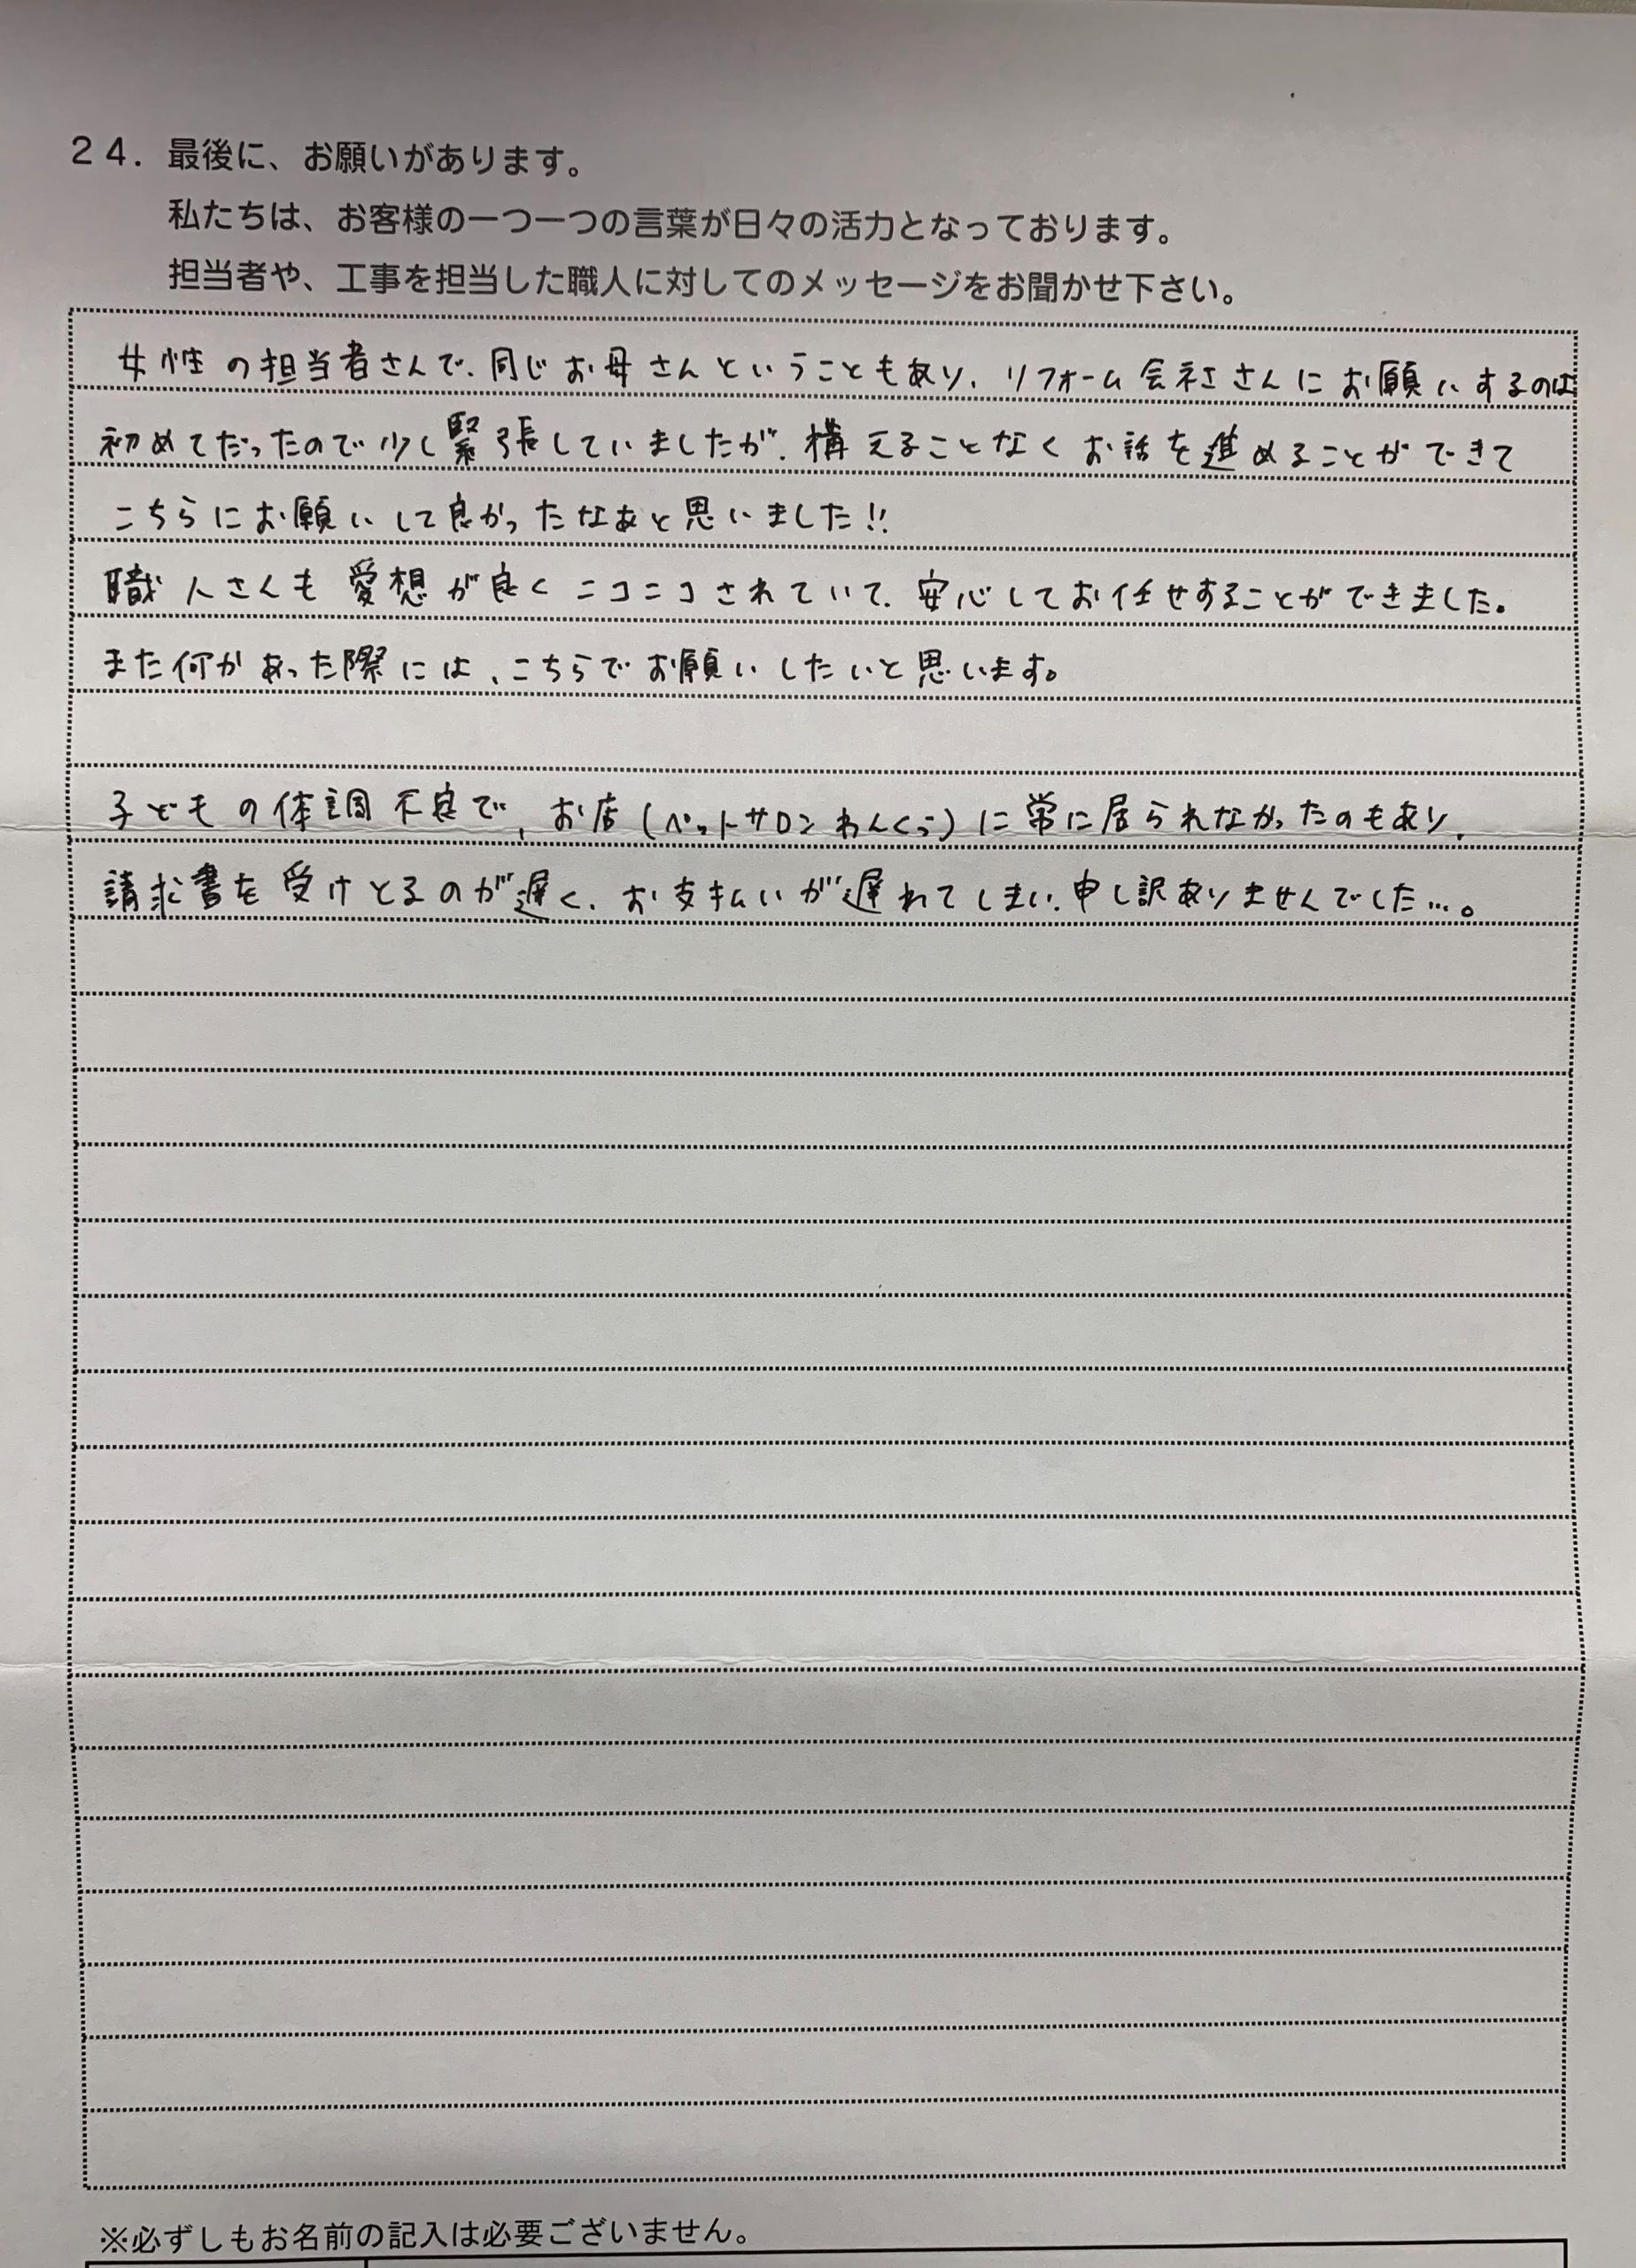 ２４．最後に、お願いがあります。
私たちは、お客様の一つ一つの言葉が日々の活力となっております。
担当者や、工事を担当した職人に対してのメッセージをお聞かせ下さい。
女性の担当者さんで、同じお母さんということもあり、リフォーム会社さんにお願いするのは
初めてだったので少し緊張していましたが、構えることなくお話を進めることができて
こちらにお願いして良かったなあと思いました!!
職人さんも愛想が良くニコニコされていて、安心してお任せすることができました。
また何かあった際には、こちらでお願いしたいと思います。
子どもの体調不良で、お店(ペットサロンわんくう)に常に居られなかったのもあり、
請求書を受けとるのが遅く、お支払いが遅れてしまい、申し訳ありませんでした…。
※必ずしもお名前の記入は必要ございません。